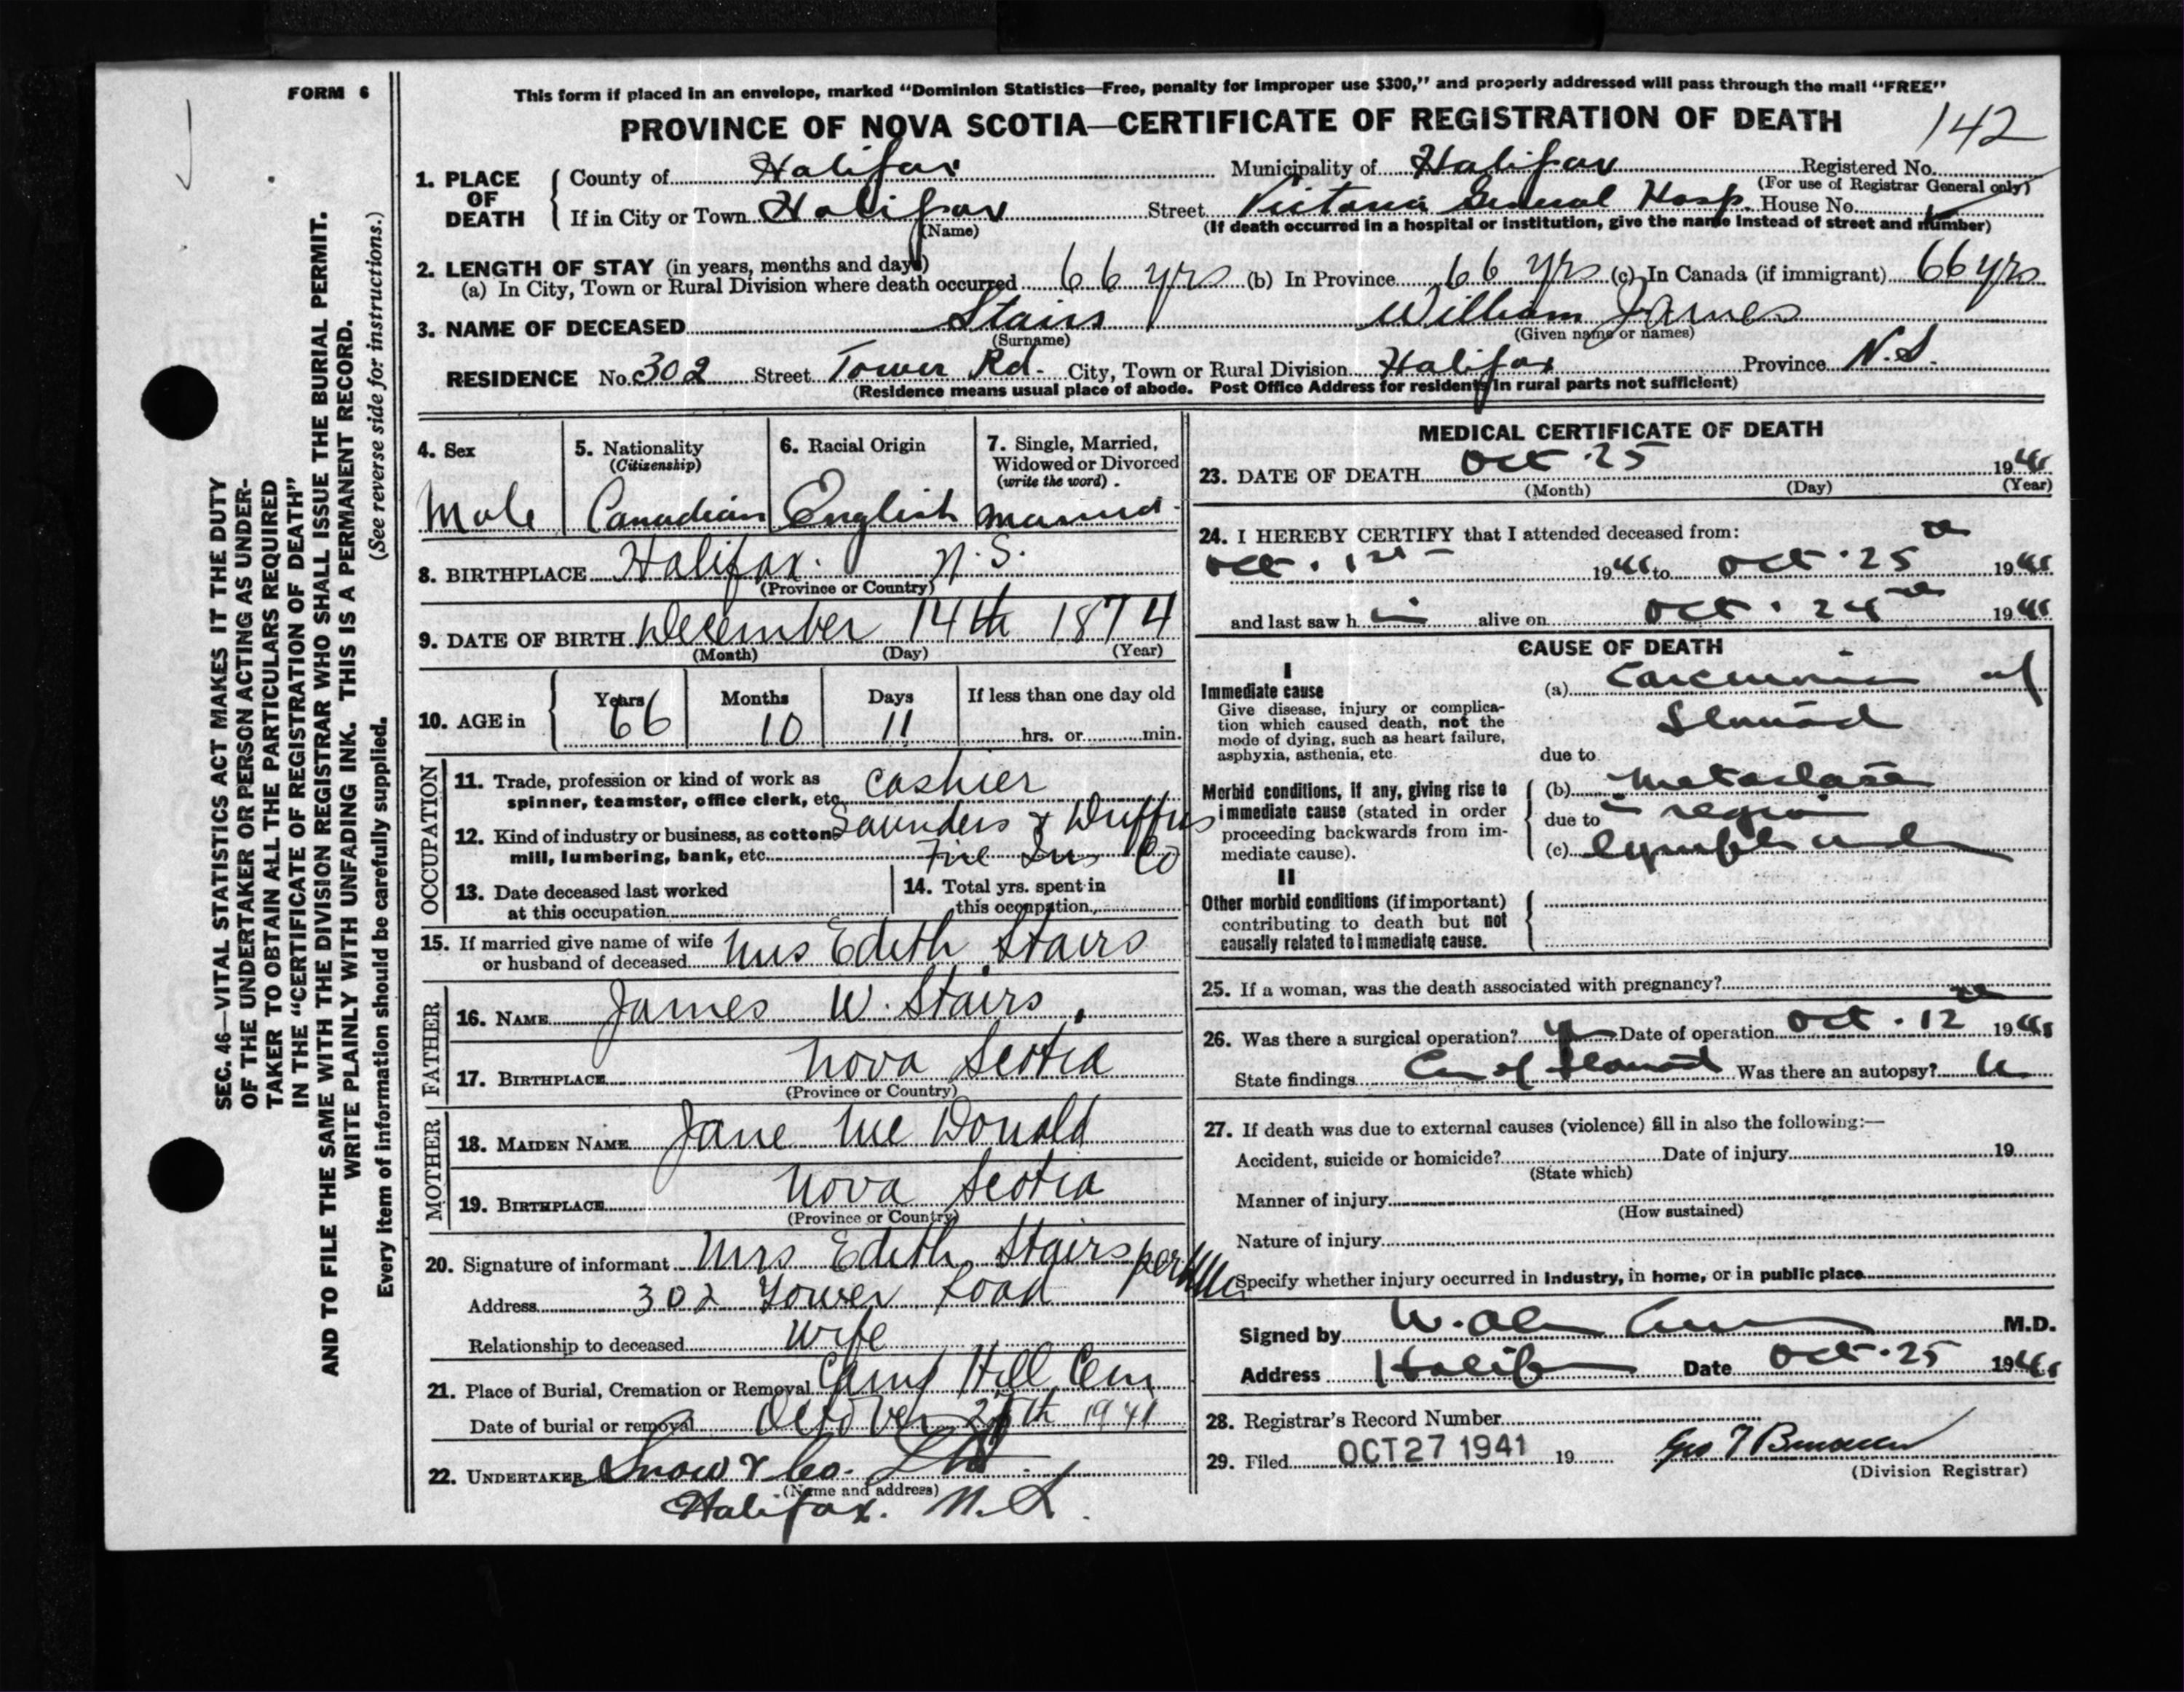 FORM 6
This form if placed in an envelope, marked "Dominion Statistics—Free, penalty for improper use $300," and properly addressed will pass through the mail "FREE"
PROVINCE OF NOVA SCOTIA—CERTIFICATE OF REGISTRATION OF DEATH
142
1. PLACE OF DEATH
County of Halifax Municipality of Halifax Registered No.
(For use of Registrar General only)
If in City or Town Halifax Street Victoria General Hosp. House No.
(Name) (If death occurred in a hospital or institution, give the name instead of street and number)
2. LENGTH OF STAY (in years, months and days)
(a) In City, Town or Rural Division where death occurred 66 yrs (b) In Province 66 yrs (c) In Canada (if immigrant) 66 yrs
3. NAME OF DECEASED Stairs William James
(Surname) (Given name or names)
RESIDENCE No. 302 Street Tower Rd. City, Town or Rural Division Halifax Province N.S.
(Residence means usual place of abode. Post Office Address for residents in rural parts not sufficient)
4. Sex
Male
5. Nationality
(Citizenship)
Canadian
6. Racial Origin
English
7. Single, Married,
Widowed or Divorced
(write the word).
Married
8. BIRTHPLACE Halifax. N.S.
(Province or Country)
9. DATE OF BIRTH December 14th 1874
(Month) (Day) (Year)
10. AGE in
Years Months Days If less than one day old
66 10 11 hrs. or min.
OCCUPATION
11. Trade, profession or kind of work as
spinner, teamster, office clerk, etc. Cashier
12. Kind of industry or business, as cotton Saunders & Duffus
mill, lumbering, bank, etc. Fire Ins Co
13. Date deceased last worked
at this occupation
14. Total yrs. spent in
this occupation
15. If married give name of wife
or husband of deceased Mrs Edith Stairs
FATHER
16. NAME James W. Stairs
17. BIRTHPLACE Nova Scotia
(Province or Country)
MOTHER
18. MAIDEN NAME Jane McDonald
19. BIRTHPLACE Nova Scotia
(Province or Country)
20. Signature of informant Mrs Edith Stairs per
Address 302 Tower Road
Relationship to deceased Wife
21. Place of Burial, Cremation or Removal Camp Hill Cem
Date of burial or removal October 1941
22. UNDERTAKER Snow & Co. Ltd.
(Name and address)
Halifax. N.S.
MEDICAL CERTIFICATE OF DEATH
23. DATE OF DEATH Oct 25 1941
(Month) (Day) (Year)
24. I HEREBY CERTIFY that I attended deceased from:
Oct. 1st 1941 to Oct. 25th 1941
and last saw h im alive on Oct. 24th 1941
CAUSE OF DEATH
I
Immediate cause
Give disease, injury or complication which caused death, not the mode of dying, such as heart failure, asphyxia, asthenia, etc
(a) Carcinoma of
Stomach
due to
Morbid conditions, if any, giving rise to immediate cause (stated in order proceeding backwards from immediate cause).
(b)
due to
(c)
II
Other morbid conditions (if important) contributing to death but not causally related to immediate cause.
25. If a woman, was the death associated with pregnancy?
26. Was there a surgical operation? yes Date of operation Oct. 12th 1941
State findings Ca of Stomach Was there an autopsy?
27. If death was due to external causes (violence) fill in also the following:—
Accident, suicide or homicide? Date of injury 19
(State which)
Manner of injury
(How sustained)
Nature of injury
Specify whether injury occurred in industry, in home, or in public place
Signed by M.D.
Address Halifax Date Oct. 25 1941
28. Registrar's Record Number
29. Filed OCT 27 1941 19
(Division Registrar)
SEC. 46—VITAL STATISTICS ACT MAKES IT THE DUTY
OF THE UNDERTAKER OR PERSON ACTING AS UNDER-
TAKER TO OBTAIN ALL THE PARTICULARS REQUIRED
IN THE "CERTIFICATE OF REGISTRATION OF DEATH"
AND TO FILE THE SAME WITH THE DIVISION REGISTRAR WHO SHALL ISSUE THE BURIAL PERMIT.
WRITE PLAINLY WITH UNFADING INK. THIS IS A PERMANENT RECORD.
Every item of information should be carefully supplied. (See reverse side for instructions.)